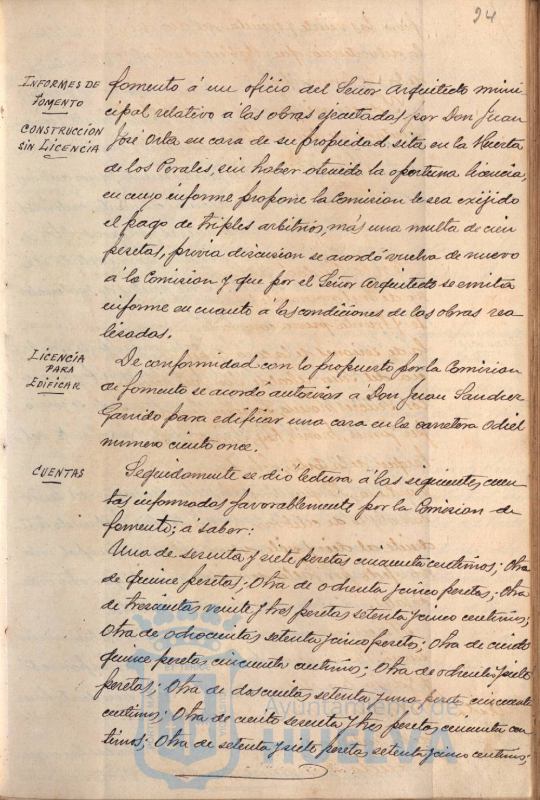 94
INFORMES DE
FOMENTO
CONSTRUCCION
SIN LICENCIA
fomento á un oficio del Señor Arquitecto muni
cipal relativo a las obras ejecutadas por Don Juan
José Orta en casa de su propiedad sita en la Huerta
de los Perales, sin haber obtenido la oportuna licencia,
en cuyo informe propone la Comision le sea exijido
el pago de triples arbitrios, más una multa de cien
pesetas, prévia discusion se acordó vuelva de nuevo
á la Comision y que por el Señor Arquitecto se emita
informe en cuanto á las condiciones de las obras rea
lizadas.
LICENCIA
PARA
EDIFICAR
De conformidad con lo propuesto por la Comision
de fomento se acordó autorizar á Don Juan Sanchez
Garrido para edificar una casa en la carretera Odiel
numero ciento once.
CUENTAS
Seguidamente se dió lectura á las siguientes cuen
tas informadas favorablemente por la Comision de
fomento; á saber:
Una de sesenta y siete pesetas cincuenta centimos; Otra
de quince pesetas; Otra de ochenta y cinco pesetas; Otra
de trescientas veinte y tres pesetas setenta y cinco centimos;
Otra de ochocientas setenta y cinco pesetas; Otra de ciento
quince pesetas cincuenta centimos; Otra de ochenta y siete
pesetas; Otra de doscientas setenta y una pesetas cincuenta
centimos; Otra de ciento sesenta y tres pesetas cincuenta cen
timos; Otra de setenta y siete pesetas setenta y cinco centimos;
Ayuntamiento de
HUELVA